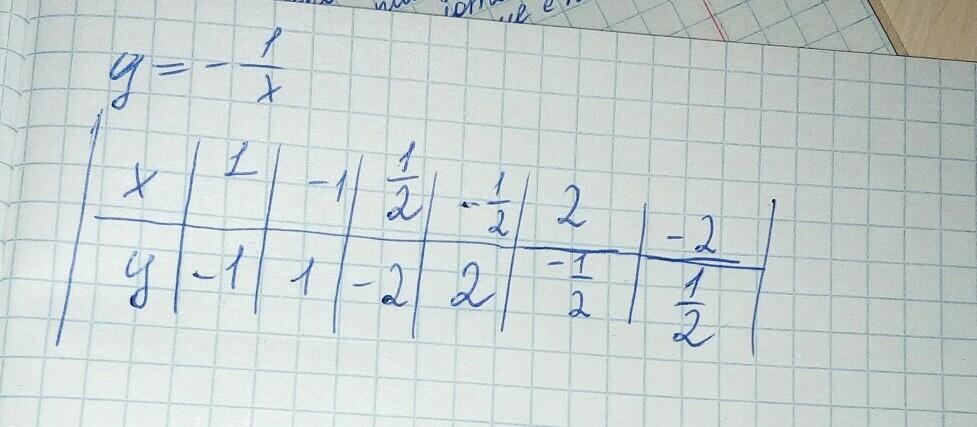 y = - 1/x
x | 1 | -1 | 1/2 | -1/2 | 2 | -2
y | -1 | 1 | -2 | 2 | -1/2 | 1/2